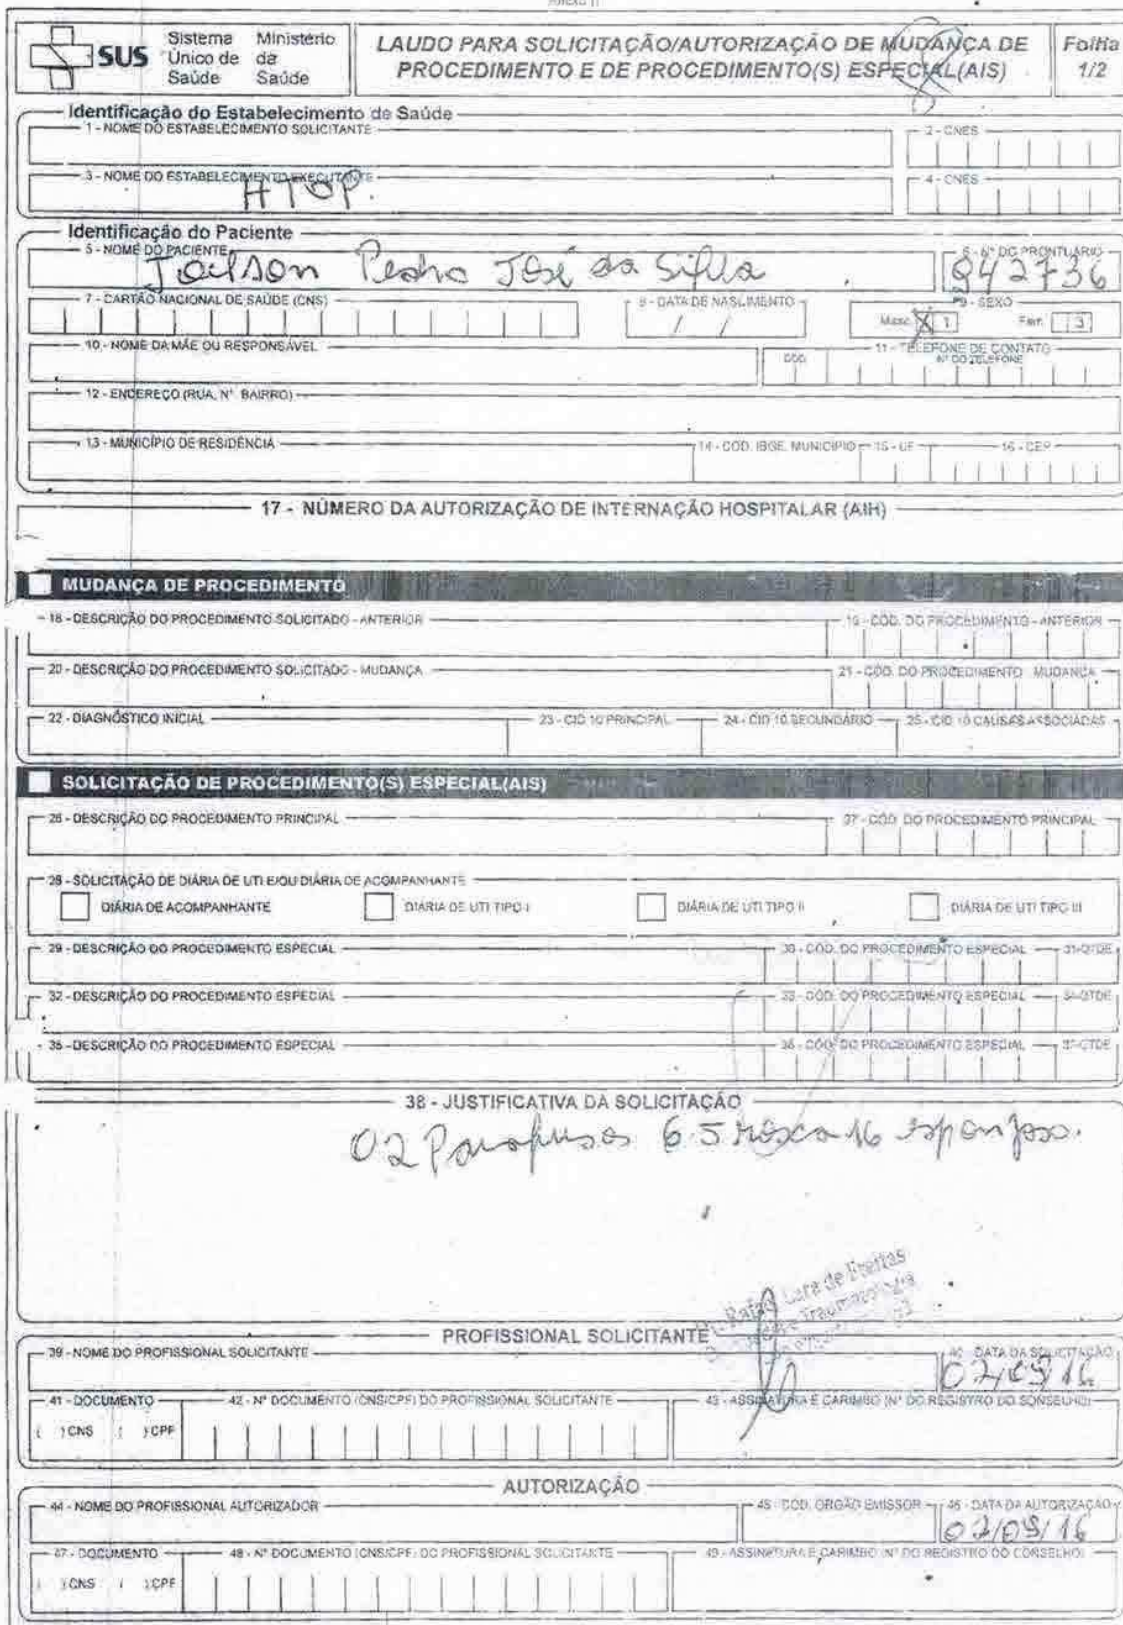 SUS Sistema Único de Saúde Ministério da Saúde
LAUDO PARA SOLICITAÇÃO/AUTORIZAÇÃO DE MUDANÇA DE PROCEDIMENTO E DE PROCEDIMENTO(S) ESPECIAL(AIS)
Folha 1/2
Identificação do Estabelecimento de Saúde
1 - NOME DO ESTABELECIMENTO SOLICITANTE
2 - CNES
3 - NOME DO ESTABELECIMENTO EXECUTANTE
4 - CNES
HTOP.
Identificação do Paciente
5 - NOME DO PACIENTE
6 - Nº DO PRONTUÁRIO
Joilson Pedro José da Silva
942736
7 - CARTÃO NACIONAL DE SAÚDE (CNS)
8 - DATA DE NASCIMENTO
9 - SEXO
/ /
Masc. X 1 Fem. 3
10 - NOME DA MÃE OU RESPONSÁVEL
11 - TELEFONE DE CONTATO
DDD Nº DO TELEFONE
12 - ENDEREÇO (RUA, Nº BAIRRO)
13 - MUNICÍPIO DE RESIDÊNCIA
14 - COD. IBGE. MUNICÍPIO
15 - UF
16 - CEP
17 - NÚMERO DA AUTORIZAÇÃO DE INTERNAÇÃO HOSPITALAR (AIH)
MUDANÇA DE PROCEDIMENTO
18 - DESCRIÇÃO DO PROCEDIMENTO SOLICITADO - ANTERIOR
19 - CÓD. DO PROCEDIMENTO - ANTERIOR
20 - DESCRIÇÃO DO PROCEDIMENTO SOLICITADO - MUDANÇA
21 - CÓD. DO PROCEDIMENTO MUDANÇA
22 - DIAGNÓSTICO INICIAL
23 - CID 10 PRINCIPAL
24 - CID 10 SECUNDÁRIO
25 - CID 10 CAUSAS ASSOCIADAS
SOLICITAÇÃO DE PROCEDIMENTO(S) ESPECIAL(AIS)
26 - DESCRIÇÃO DO PROCEDIMENTO PRINCIPAL
27 - CÓD. DO PROCEDIMENTO PRINCIPAL
28 - SOLICITAÇÃO DE DIÁRIA DE UTI E/OU DIÁRIA DE ACOMPANHANTE
DIÁRIA DE ACOMPANHANTE
DIÁRIA DE UTI TIPO I
DIÁRIA DE UTI TIPO II
DIÁRIA DE UTI TIPO III
29 - DESCRIÇÃO DO PROCEDIMENTO ESPECIAL
30 - CÓD. DO PROCEDIMENTO ESPECIAL
31-QTDE
32 - DESCRIÇÃO DO PROCEDIMENTO ESPECIAL
33 - CÓD. DO PROCEDIMENTO ESPECIAL
34-QTDE
35 - DESCRIÇÃO DO PROCEDIMENTO ESPECIAL
36 - CÓD. DO PROCEDIMENTO ESPECIAL
37-QTDE
38 - JUSTIFICATIVA DA SOLICITAÇÃO
02 Parafusos 6.5 rosca 16 esponjoso.
Lara de Freitas
PROFISSIONAL SOLICITANTE
39 - NOME DO PROFISSIONAL SOLICITANTE
40 - DATA DA SOLICITAÇÃO
02/09/16
41 - DOCUMENTO
42 - Nº DOCUMENTO (CNS/CPF) DO PROFISSIONAL SOLICITANTE
43 - ASSINATURA E CARIMBO (Nº DO REGISTRO DO CONSELHO)
( ) CNS ( ) CPF
AUTORIZAÇÃO
44 - NOME DO PROFISSIONAL AUTORIZADOR
45 - COD. ORGÃO EMISSOR
46 - DATA DA AUTORIZAÇÃO
02/09/16
47 - DOCUMENTO
48 - Nº DOCUMENTO (CNS/CPF) DO PROFISSIONAL SOLICITANTE
49 - ASSINATURA E CARIMBO (Nº DO REGISTRO DO CONSELHO)
( ) CNS ( ) CPF